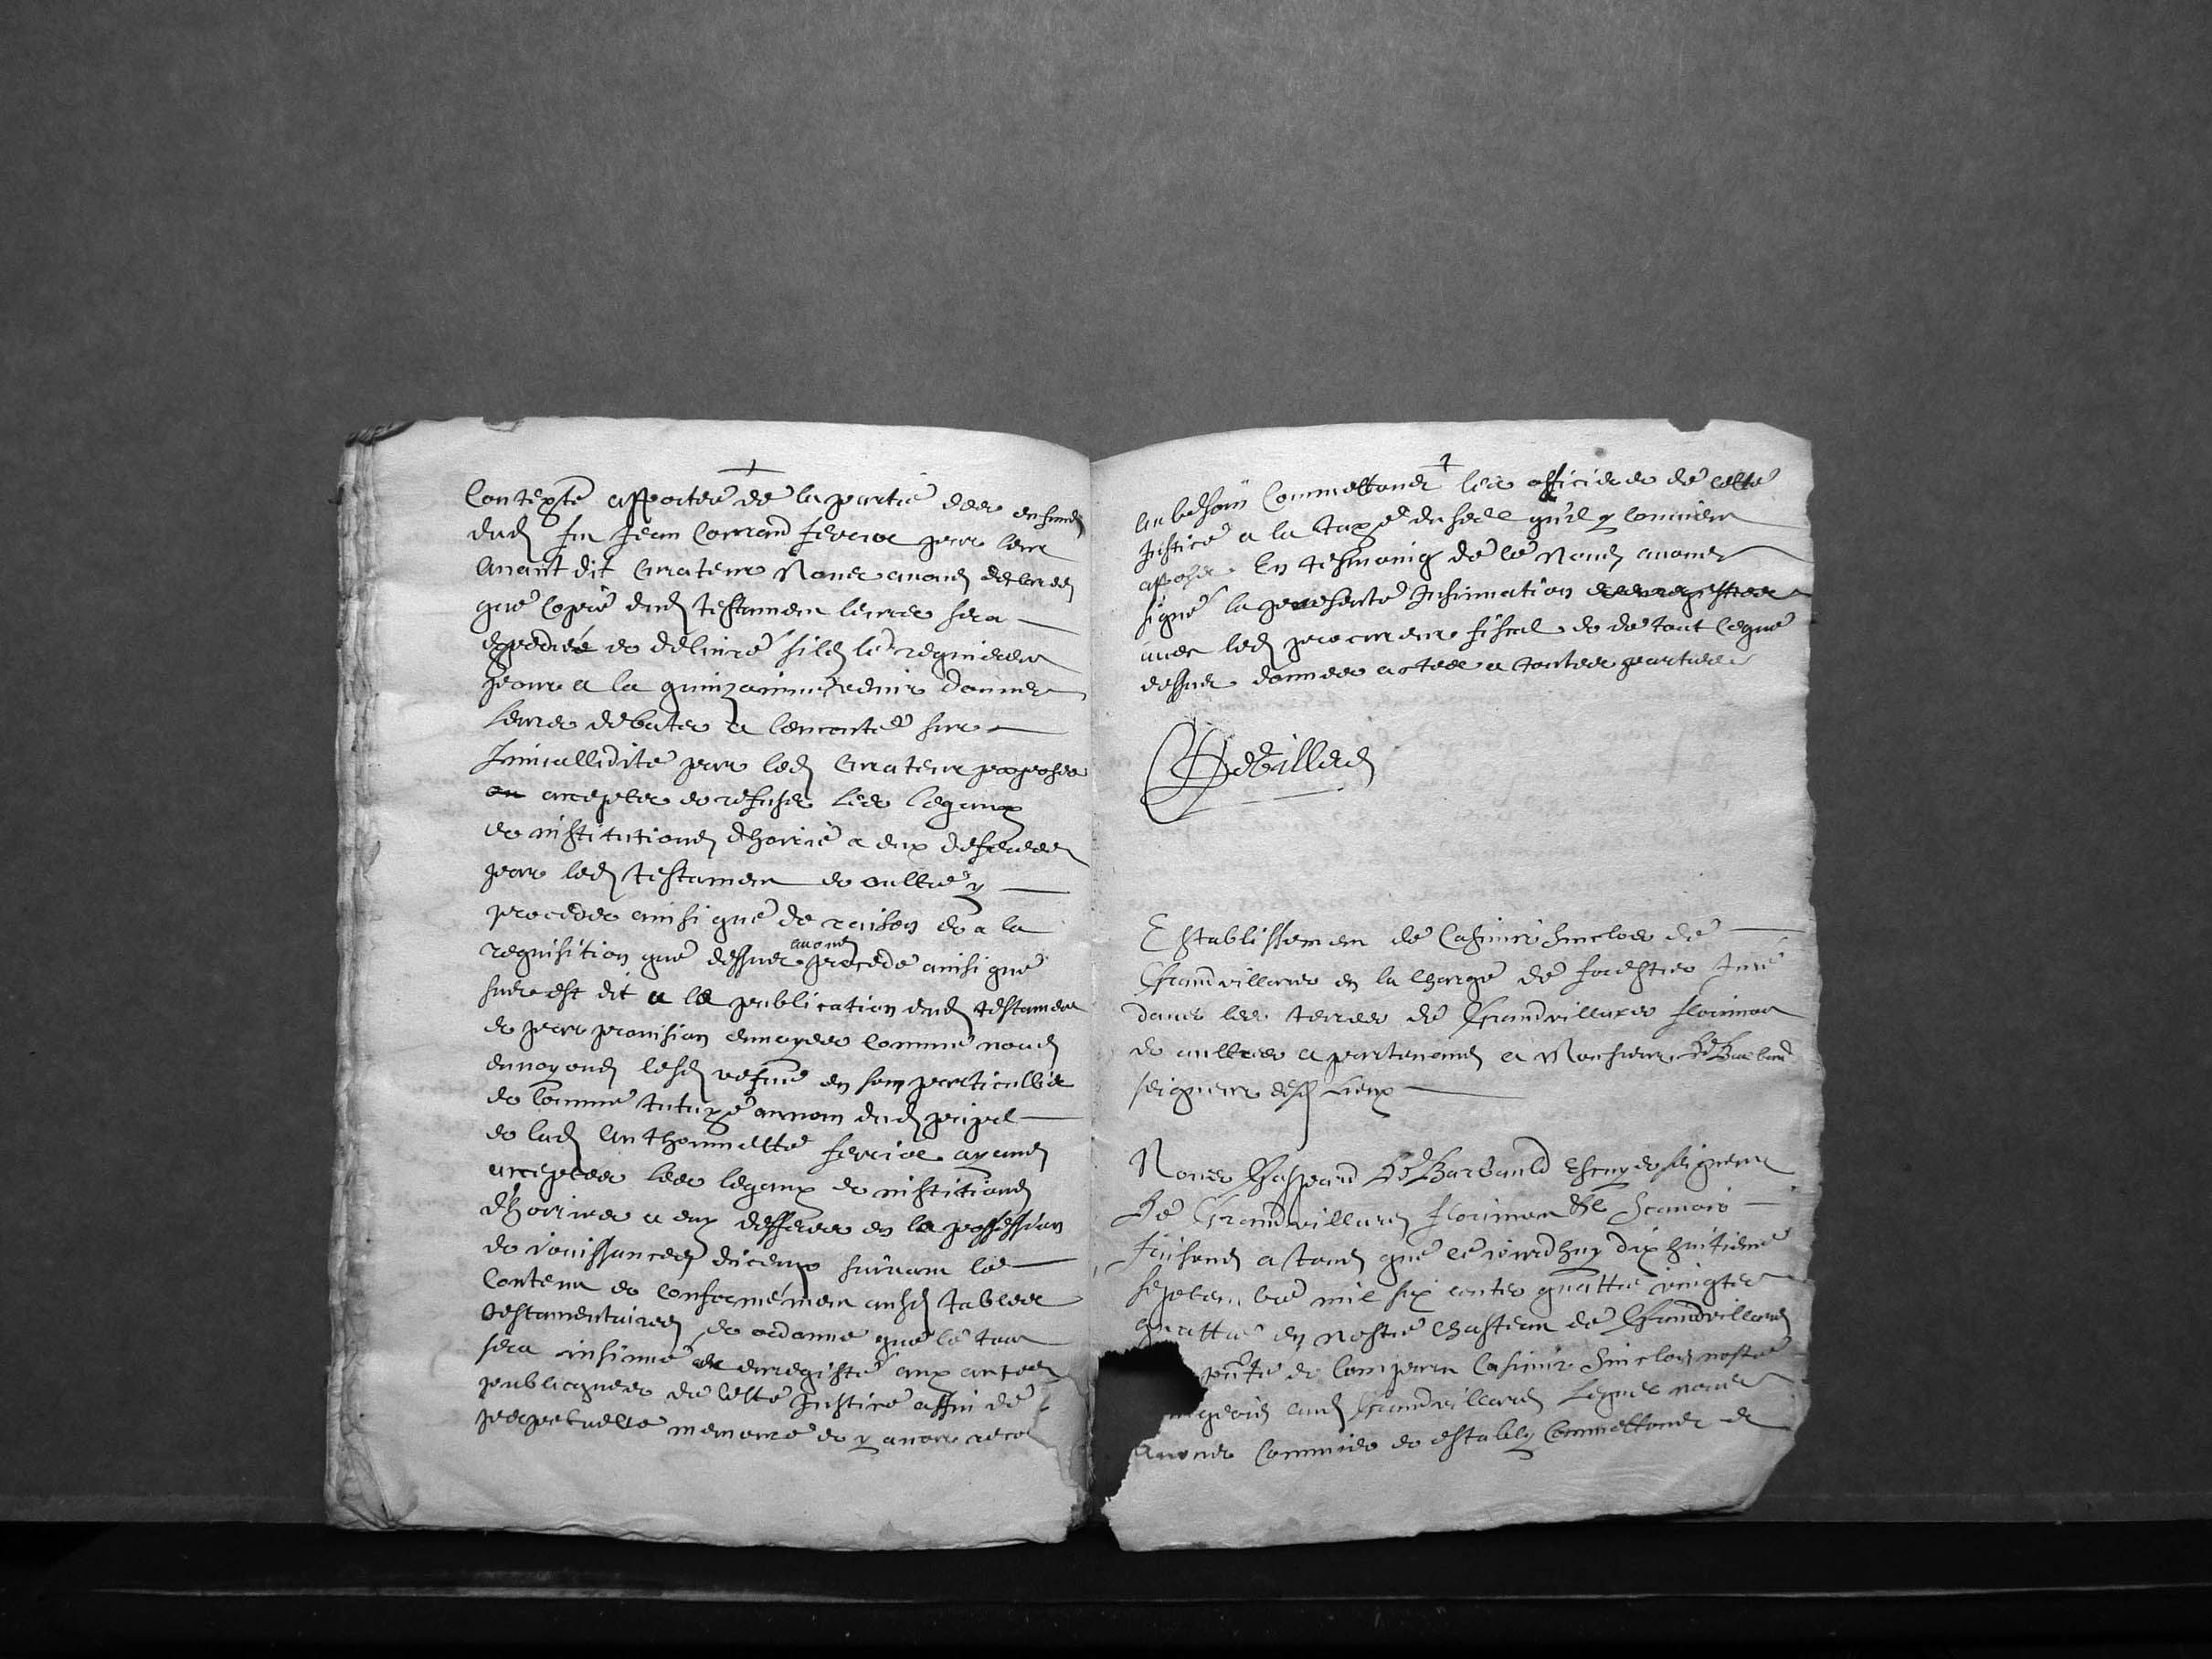 Contexte apportée de la partie des enfans
dud feu Jean Conrand ferrier par leur
avant dit Curateur Nous avons declarez
que Copie dud testament leurs sera
expediée et delivré silz le requierent
pour a la quinzaine venir donner
leurs debates a lencontre sur
Linvallidite par led Curateur proposée
accepter et refuser les legaux
et institutions dhoirie a eux deferees
par led testament et oultre y
proceder ainsi que de raison et a la
requisition que dessus avons procede ainsi que
sus est dit a la publication dud testament
et par provision envoyer comme nous
envoyons lesd vefue en son particullier
et comme tutrixe au nom dud pupil
et lad Anthoinnette ferrier ayans
acceptees les legaux et institutions
dhoiries a eux defferees en la possession
et jouissances diceux suivant le
Contenu et conformément ausd tables
testamentaires, et ordonne que le tout
sera insinué et enregisté aux actes
publicques de cette Justice affin de
perpetuelle memoire et y avoir reco
au besoin Commettons les officiers de cette
Justice a la taxe du seel qu'il y convient
apposer En tesmoing de ce Nous avons
signé la presente Insinuation
avec led procureur fiscal et de tout ce que
dessus donnees actee a toutes parties
Devillers
Establissement de Casimir Sincloz de
Grandvillars en la charge de forestier Juré
dans les terres de Grandvillars florimont
et aultres apartenans a Monsieur De Barbaud
seigneur desd Lieux
Nous Gaspard De Barbauld Escuyer seigneur
De Grandvillars florimont et
faisons a tous que ce jourdhuy dix huitieme
septembre mil six centz quattre vingtz
quattre en nostre chasteau de Grandvillars
pnte et comparu Casimir Sincloz nostre
geois aud Grandvillars Lequel nous
avons Commis et estably Commettons et